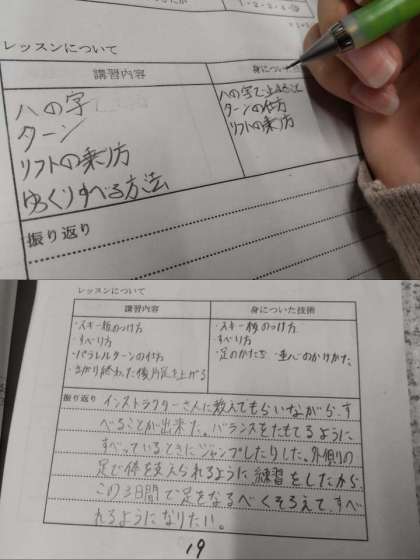 レッスンについて
講習内容
身についた技
ハの字
ターン
リフトの乗り方
ゆっくりすべる方法
ハの字で止まること
ターンの仕方
リフトの乗り方
振り返り
レッスンについて
講習内容
身についた技術
・スキー板のつけ方
・すべり方
・パラレルターンの仕方
・まがり終わった後片足を上げる
・スキー板のつけ方
・すべり方
・足のかたち ・重心のかけかた
振り返り
インストラクターさんに教えてもらいながら、す
べることが出来た。バランスをたもてるように
すべっているときにジャンプしたりした。外側の
足で体を支えられるように練習をしたから
この3日間で足をなるべくそろえて、すべ
れるようになりたい。
19